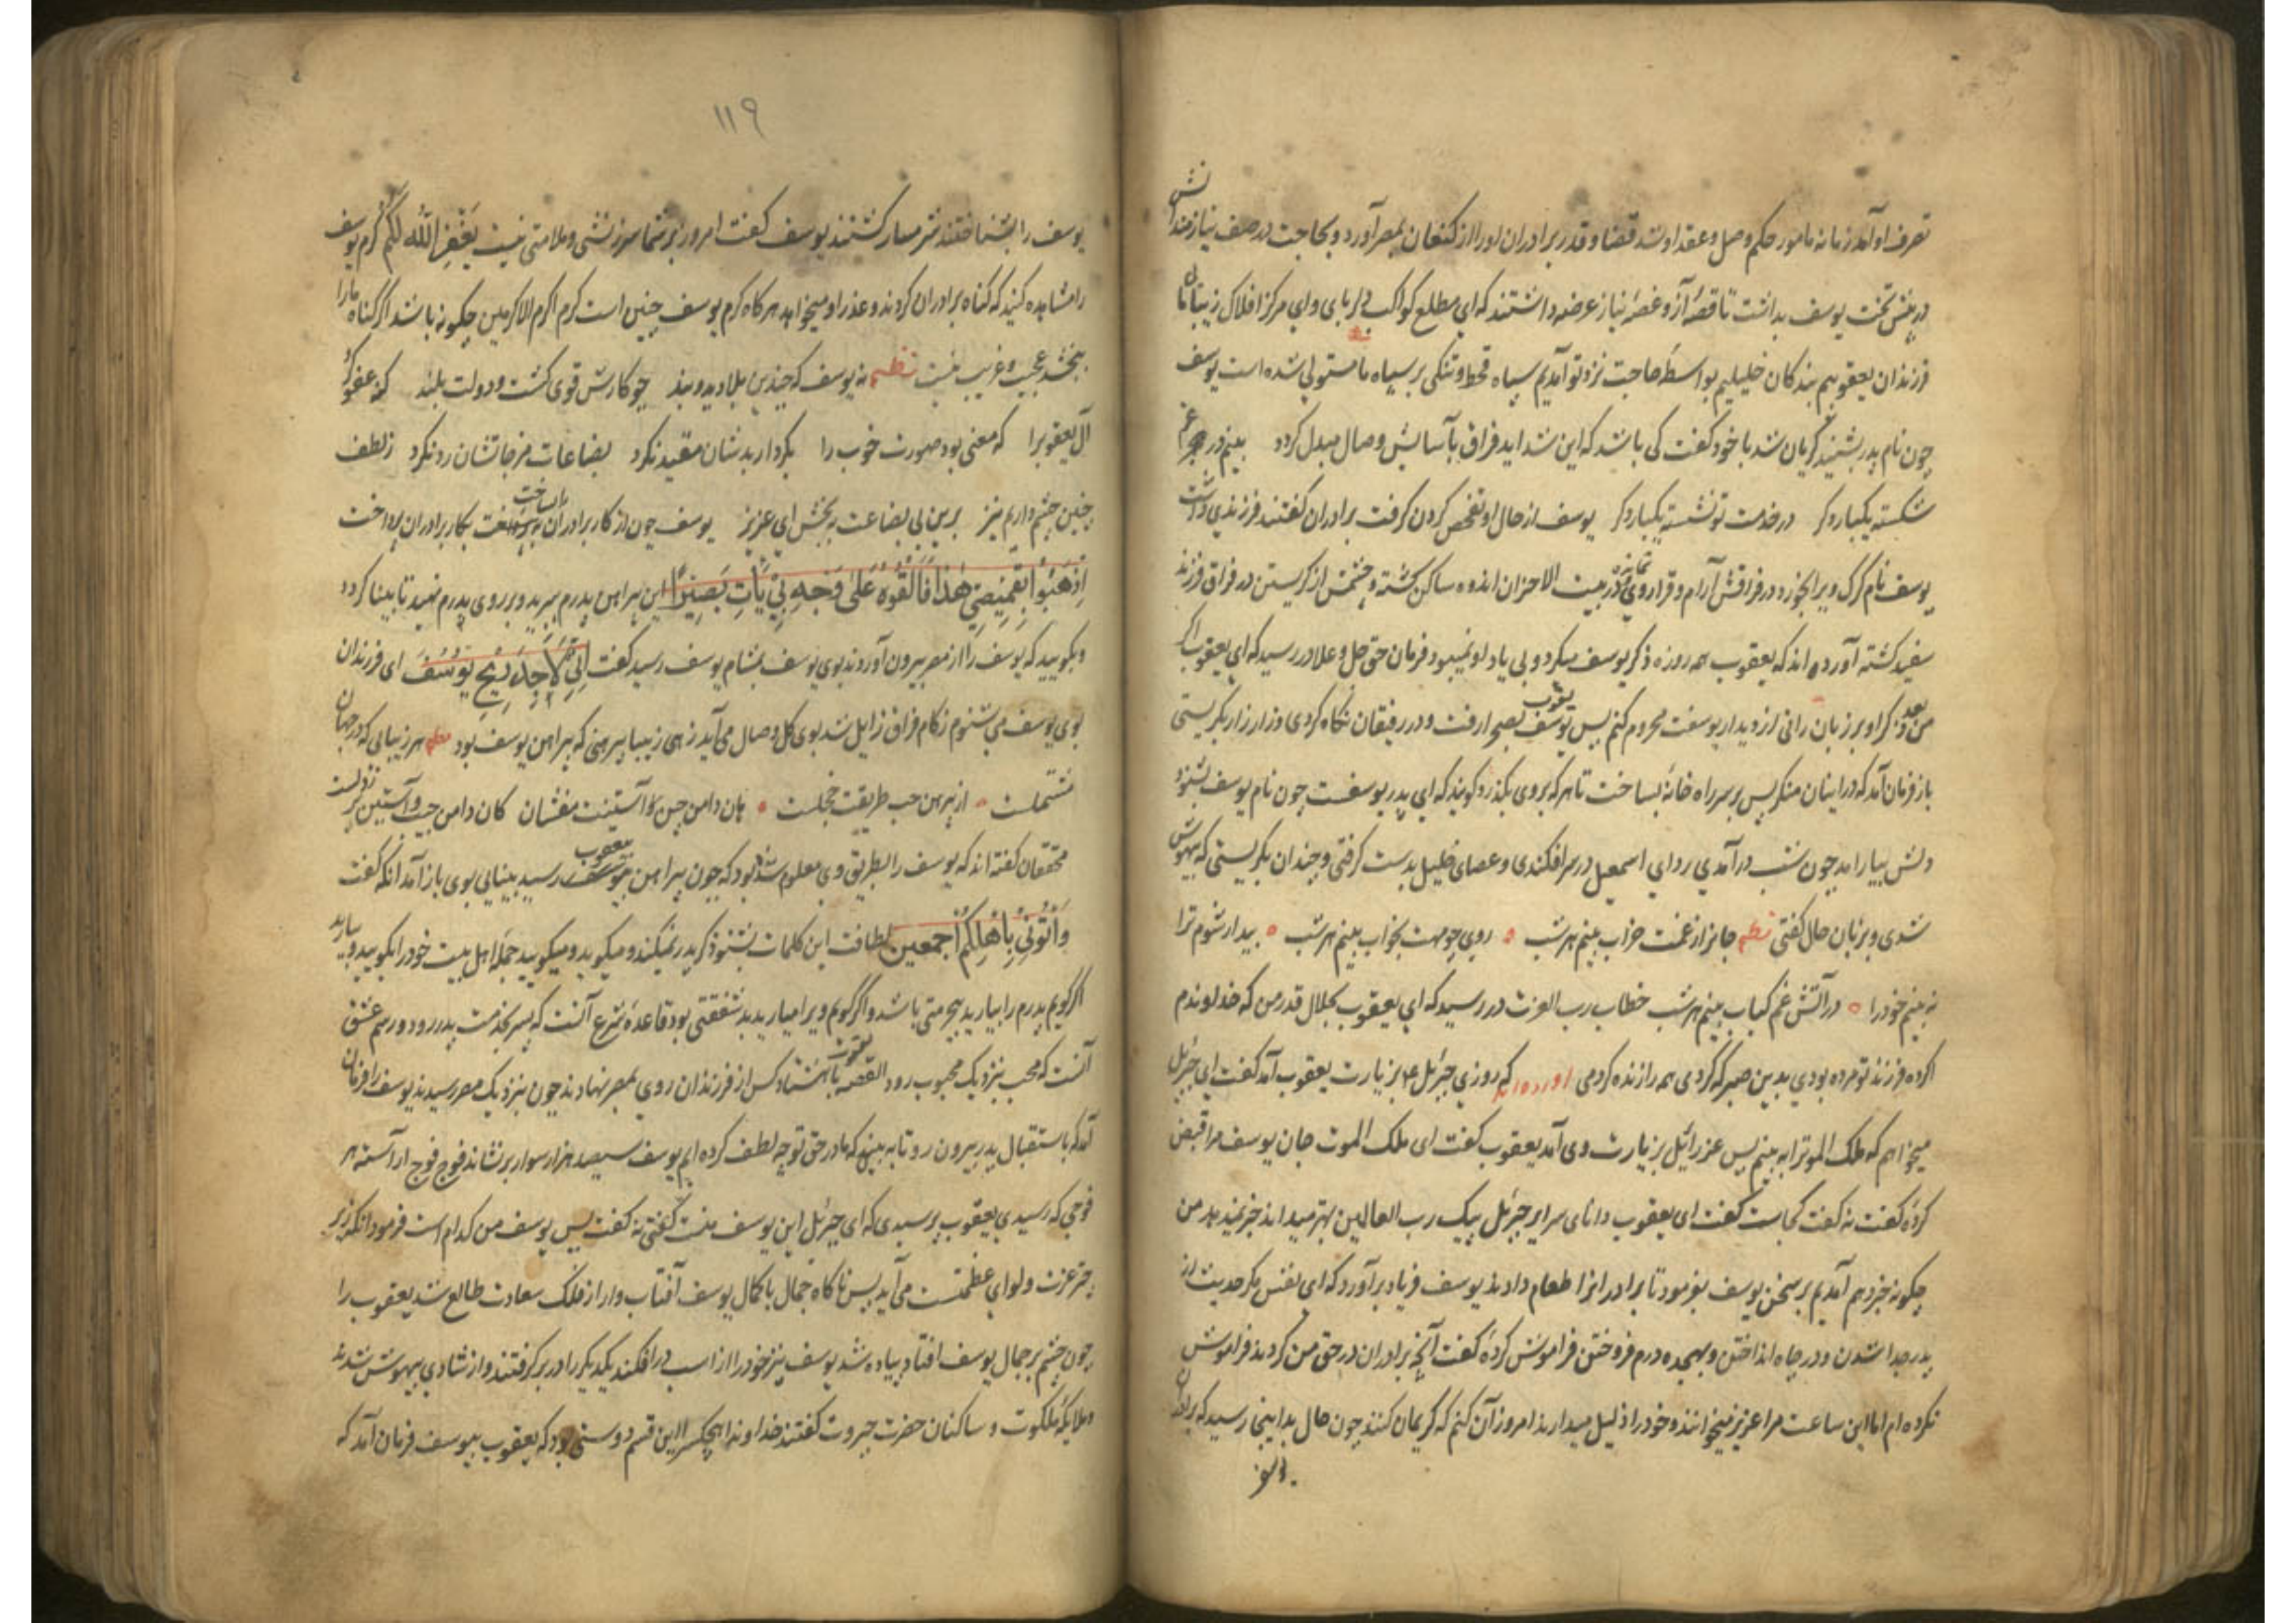 تصرف او آمد زمانه مامور حکم وصل و عقد او شد قضا و قدر برادران او را از کنعان بمصر آورد و بحاجت در صف نیازمندانش
در پیش تخت یوسف بداشت تا قصهٔ آز و غصهٔ نیاز عرضه داشتند که ای مطلع کواکب دلربای و ای مرکز افلاک زیبائی ما
فرزندان یعقوبیم بندکان خلیلیم بواسطهٔ حاجت نزد تو آمدیم سپاه قحط و تنکی بر سپاه ما مستولی شده است یوسف
چون نام پدر بشنید کریان شد با خود کفت کی باشد که این شداید فراق بآسایش وصال مبدل کردد بینم در غم
شکسته یکبار دکر در خدمت تو نشسته یکبار دکر یوسف از حال او تفحص کردن کرفت برادران کفتند فرزندی داشت
یوسف نام کرک ویرا بخورد و در فراقش آرام و قرار وی نمانده در بیت الاحزان اندوه ساکن کشته و چشمش از کریستن در فراق فرزند
سفید کشته آورده اند که یعقوب همه روزه ذکر یوسف میکرد و بی یاد او نمیبود فرمان حق جل و علا در رسید که ای یعقوب اکر
من بعد ذکر او بر زبان رانی از دیدار یوسفت محروم کنم پس یعقوب بصحرا رفت و در رفیقان نکاه کردی و زار زار بکریستی
باز فرمان آمد که در اینان منکر پس بر سر راه خانهٔ بساخت تا هر که بر وی بکذرد کویند که ای پدر یوسفست چون نام یوسف بشنود
دلش بیارامد چون شب در آمدی ردای اسمعیل در سر افکندی و عصای خلیل بدست کرفتی و چندان بکریستی که بیهوش
شدی و بزبان حال کفتی نظم جانرا ز غمت خراب بینم هر شب روی چو مهت بخواب بینم هر شب بیدار شوم ترا
نه بینم خود را در آتش غم کباب بینم هر شب خطاب رب العزت در رسید که ای یعقوب بجلال قدر من که خداوندم
اکر ده فرزند تو مرده بودی بدین صبر که کردی همه را زنده کردمی آورده اند که روزی جبرئیل ع بزیارت یعقوب آمد کفت ای جبرئیل
میخواهم که ملک الموترا به بینم پس عزرائیل بزیارت وی آمد یعقوب کفت ای ملک الموت جان یوسف مرا قبض
کردهٔ کفت نه کفت کجاست کفت ای یعقوب دانای سرایر جبرئیل پیک رب العالمین بهتر میداند خبر نمیدهد من
چکونه خبر دهم آمدیم بر سخن یوسف بفرمود تا برادرانرا طعام دادند یوسف فریاد بر آورد که ای نفس مکر حدیث از
پدر جدا شدن و در چاه انداختن و بهجده درم فروختن فراموش کردهٔ کفت آنچه برادران در حق من کردند فراموش
نکرده ام اما این ساعت مرا عزیز میخوانند و خود را ذلیل میدارند امروز آن کنم که کریمان کنند چون حال بدانینجا رسید که برادران
یوسف
۱۱۹
یوسف را بشناختند شرمسار کشتند یوسف کفت امروز بر شما سرزنشی و ملامتی نیست یَغْفِرُ اللهُ لَکُمْ کرم یوسف
را مشاهده کنید که کناه برادران کردند و عذر او میخواهد هر کاه کرم یوسف چنین است کرم اکرم الاکرمین چکونه باشد اکر کناه ما را
ببخشد عجب و غریب نیست نظم نه یوسف که چندین بلا دید و بند چو کارش قوی کشت و دولت بلند کنه عفو کرد
آل یعقوبرا که معنی بود صورت خوب را بکردار بدشان مقید نکرد بضاعات مزجاتشان رد نکرد ز لطف
چنین چشم داریم نیز برین بی بضاعت ببخش ای عزیز یوسف چون از کار برادران باز ساخت بکار برادران پرداخت
اِذْهَبُوا بِقَمِیصِی هٰذَا فَاَلْقُوهُ عَلیٰ وَجْهِ اَبِی یَأْتِ بَصِیرًا این پیراهن پدرم ببرید و بر روی پدرم نهید تا بینا کردد
و بکویید که یوسف را از مصر بیرون آوردند بوی یوسف بمشام یوسف رسید کفت اِنِّی لَاَجِدُ رِیحَ یُوسُفَ ای فرزندان
بوی یوسف می شنوم زکام فراق زایل شد بوی کل وصال می آید زهی زیبا پیرهنی که پیراهن یوسف بود نظم هر زیبایی که در جهان
مشتملست از پیرهن حب طریقت خجلست هان دامن چین و آستینت مفشان کان دامن جیب و آستین
محققان کفته اند که یوسف را بطریق وی معلوم شده بود که چون پیراهن بیعقوب رسید بینایی بوی باز آمد انکه کفت
وَأْتُونِی بِاَهْلِکُمْ اَجْمَعِین لطافت این کلمات بشنو ذکر پدر نمیکند و میکوید و میکویید جملهٔ اهل بیت خود را بکویید و بیارید
اکر کویم پدرم را بیارید بیحرمتی باشد و اکر کویم ویرا میارید بد شفقتی بود قاعدهٔ شرع آنست که پسر بخدمت پدر رود و رسم عشق
آنست که محب بنزدیک محبوب رود القصه یعقوب با هشتاد کس از فرزندان روی بمصر نهادند چون بنزدیک مصر رسیدند یوسف را فرمان
آمد که باستقبال پدر بیرون رو تا به بیند که ما در حق تو چه لطف کرده ایم یوسف سیصد هزار سوار بر نشاند فوج فوج آراسته هر
فوجی که رسیدی یعقوب پرسیدی که ای جبرئیل این یوسف منست کفتی نه کفت پس یوسف من کدام است فرمود انکه زیر
چتر عزت و لوای عظمتست می آید پس ناکاه جمال با کمال یوسف آفتاب وار از فلک سعادت طالع شد یعقوب را
چون چشم بر جمال یوسف افتاد پیاده شد یوسف نیز خود را از اسب در افکند یکدیکر را در بر کرفتند و از شادی بیهوش شدند
و ملایکهٔ ملکوت و ساکنان حضرت جبروت کفتند خداوندا هیچکس را این قسم دوستی بود که یعقوب بیوسف فرمان آمد که